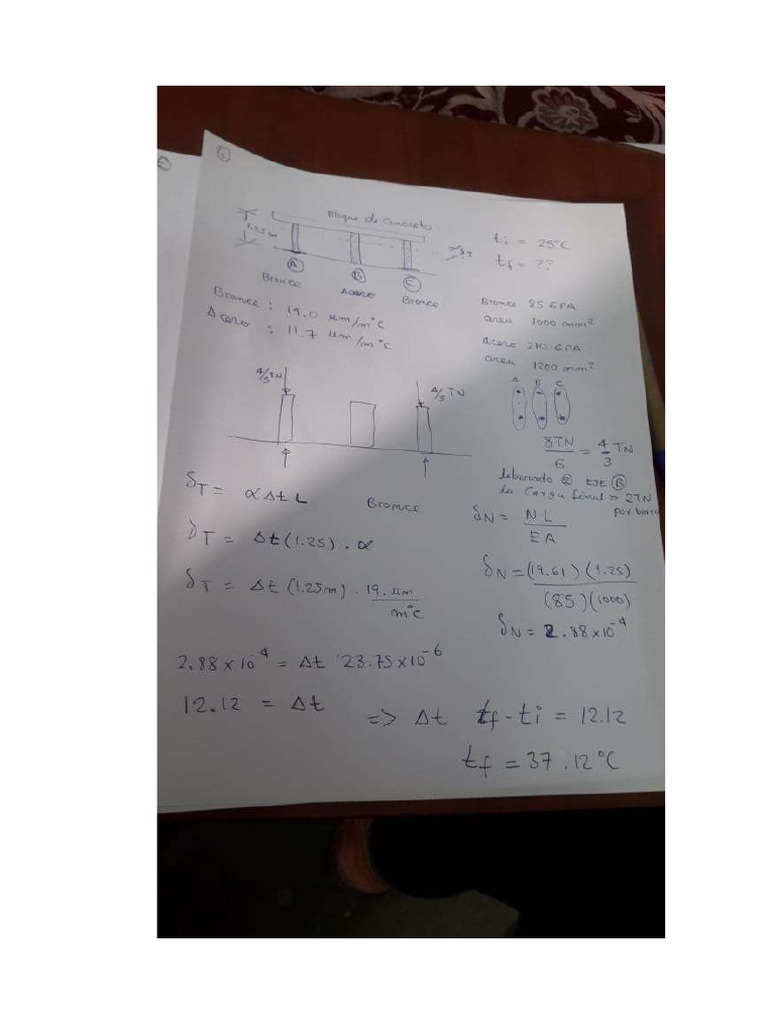 ①
Bloque de Concreto
1.25m
ti = 25°C
tf = ??
A B C
Bronce Acero Bronce
Bronce : 19.0 μm/m°C
Acero : 11.7 μm/m°C
Bronce 85 GPA
area 1000 mm²
acero 210 GPA
area 1200 mm²
A B C
4/3 TN
4/3 TN
8TN/6 = 4/3 TN
liberando EJE B
la Carga final = 2TN
por barra
δT = α Δt L
Bronce
δN = NL/EA
δT = Δt (1.25) . α
δN = (19.61)(1.25)/(85)(1000)
δT = Δt (1.25m) . 19. μm/m°C
δN = 2.88x10⁻⁴
2.88x10⁻⁴ = Δt 23.75x10⁻⁶
12.12 = Δt
=> Δt tf - ti = 12.12
tf = 37.12°C